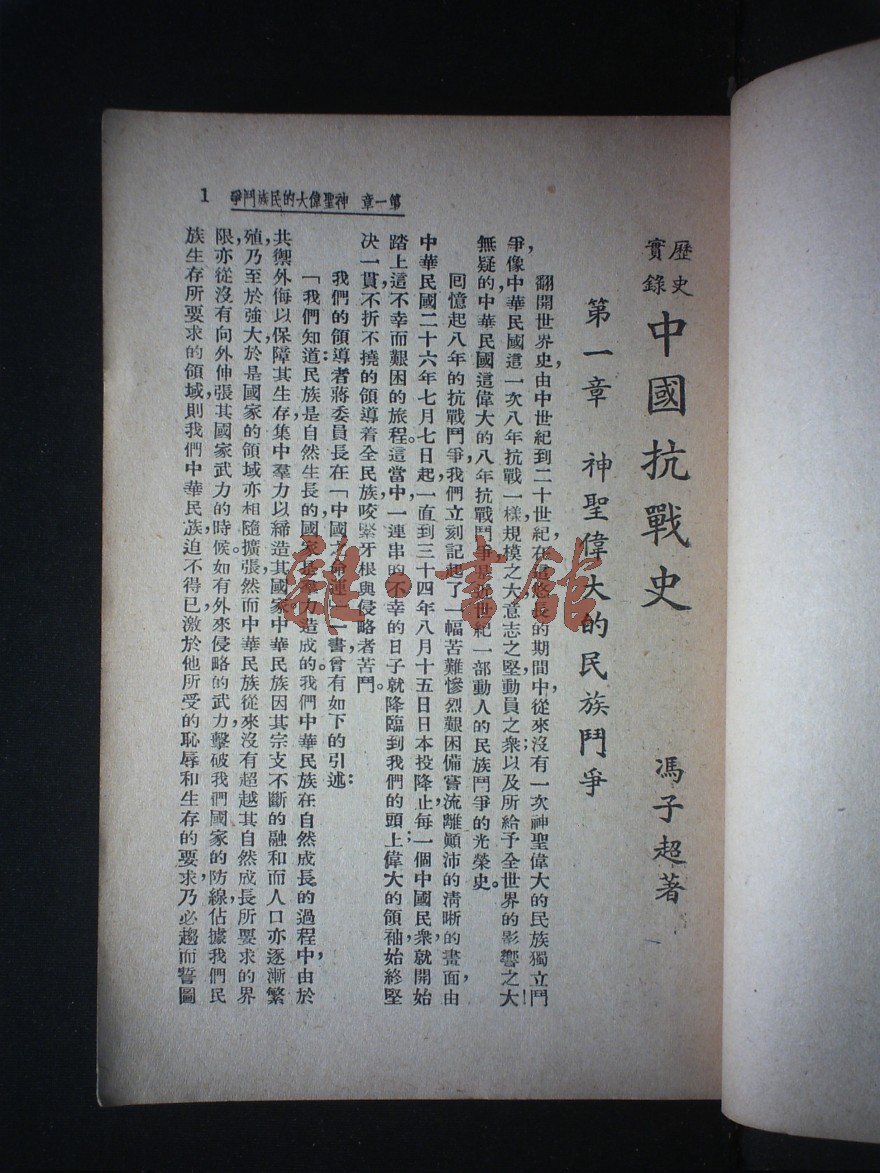 歷史
實錄
中國抗戰史
馮子超著
第一章 神聖偉大的民族鬥爭
翻開世界史，由中世紀到二十世紀，在這悠長的期間中，從來沒有一次神聖偉大的民族獨立鬥
爭，像中華民國這一次八年抗戰一樣，規模之大，意志之堅，動員之衆，以及所給予全世界的影響之大！
無疑的，中華民國這偉大的八年抗戰鬥爭，是近世紀一部動人的民族鬥爭的光榮史。
囘憶起八年的抗戰鬥爭，我們立刻記起了一幅苦難慘烈，艱困備嘗，流離顚沛的清晰的畫面，由
中華民國二十六年七月七日起，一直到三十四年八月十五日日本投降止，每一個中國民衆，就開始
踏上這不幸而艱困的旅程。這當中，一連串的不幸的日子就降臨到我們的頭上，偉大的領袖始終堅
决一貫，不折不撓的領導着全民族，咬緊牙根與侵略者苦鬥。
我們的領導者蔣委員長在「中國之命運」一書曾有如下的引述：
「我們知道民族是自然生長的，國家是羣力造成的。我們中華民族在自然成長的過程中，由於
共禦外侮以保障其生存，集中羣力以締造其國家。中華民族因其宗支不斷的融和而人口亦逐漸繁
殖，乃至於強大，於是國家的領域亦相隨擴張，然而中華民族從來沒有超越其自然成長所要求的界
限，亦從沒有向外伸張其國家武力的時候。如有外來侵略的武力，擊破我們國家的防線，佔據我們民
族生存所要求的領域，則我們中華民族，迫不得已，激於他所受的恥辱和生存的要求，乃必趨而誓圖
第一章 神聖偉大的民族鬥爭
1
雜·書館